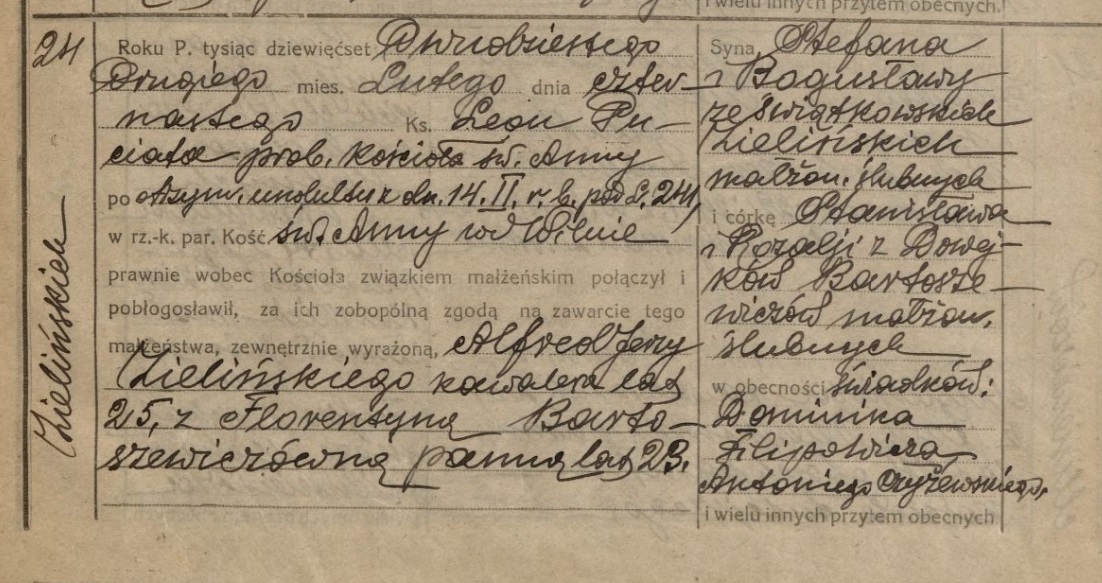 i wielu innych przytem obecnych.
24
Roku P. tysiąc dziewięćset Dwudziestego
Drugiego mies. Lutego dnia czter-
nastego Ks. Leon Pu-
ciata prob. kościoła św. Anny
po dn. 14. II. r. b. pod L. 24,
w rz.-k. par. Kość. św. Anny we Wilnie
prawnie wobec Kościoła związkiem małżeńskim połączył i
pobłogosławił, za ich zobopólną zgodą na zawarcie tego
małżeństwa, zewnętrznie wyrażoną, Alfred Jerzy
Zielińskiego kawalera lat
25, z Florentyną Barto-
szewiczówną panną lat 23.
Zielińskich
Syna Stefana
i Bogusławy
ze Świątkowskich
Zielińskich
małżon. ślubnych
i córkę Stanisława
i Rozalji z Dowej-
ków Bartosze-
wiczów małżon.
ślubnych
w obecności świadków:
Dominika
Filipowicza
Antoniego Czyżewskiego,
i wielu innych przytem obecnych.